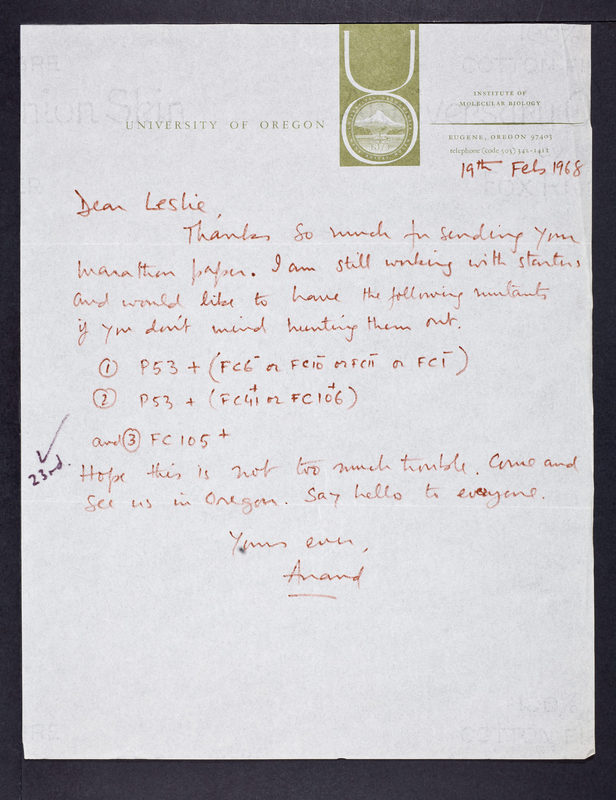 UNIVERSITY OF OREGON
INSTITUTE OF
MOLECULAR BIOLOGY
EUGENE, OREGON 97403
telephone (code 503) 342-1411
19th Feb 1968
Dear Leslie,
Thanks so much for sending your
marathon paper. I am still working with starters
and would like to have the following mutants
if you don't mind hunting them out.
① P53 + (FC6⁻ or FC10⁻ or FC11⁻ or FC1⁻)
② P53 + (FC41⁺ or FC106⁺)
and ③ FC105⁺
23rd.
Hope this is not too much trouble. Come and
see us in Oregon. Say hello to everyone.
Yours ever,
Anand